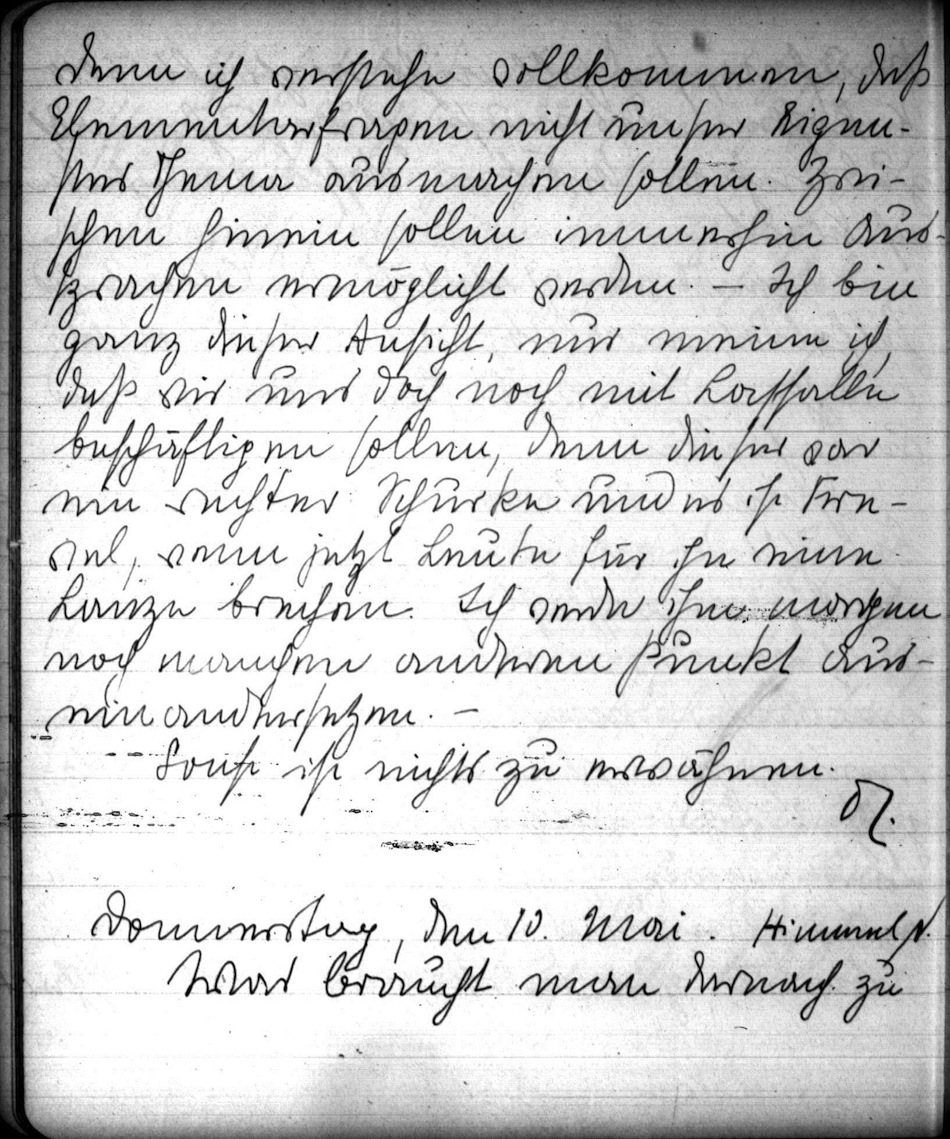 denn ich verstehe vollkommen, daß
Elementarfragen nicht unser Eigen-
stes Thema ausmachen sollen. Zwi-
schen hinein sollen immerhin Aus-
sprachen ermöglicht werden. – Ich bin
ganz dieser Ansicht, nur meine ich,
daß wir uns doch noch mit Lassalle
beschäftigen sollen, denn dieser war
ein rechter Schurke und es ist Fre-
vel, wenn jetzt Leute für ihn eine
Lanze brechen. Ich werde ihm morgen
noch manchen anderen Punkt aus-
einandersetzen. –
Sonst ist nichts zu erwähnen.
Donnerstag, den 10. Mai. Himmelf.
Was braucht man darnach zu